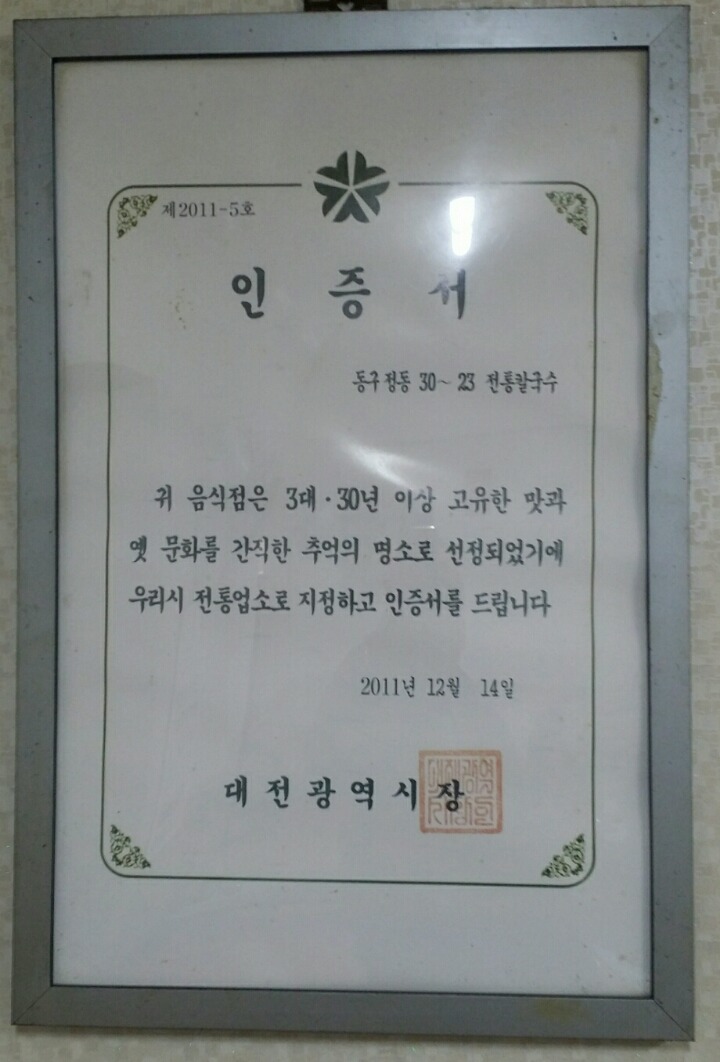 제2011-5호
인 증 서
동구 정동 30~23 전통칼국수
귀 음식점은 3대·30년 이상 고유한 맛과
옛 문화를 간직한 추억의 명소로 선정되었기에
우리시 전통업소로 지정하고 인증서를 드립니다
2011년 12월 14일
대전광역시장